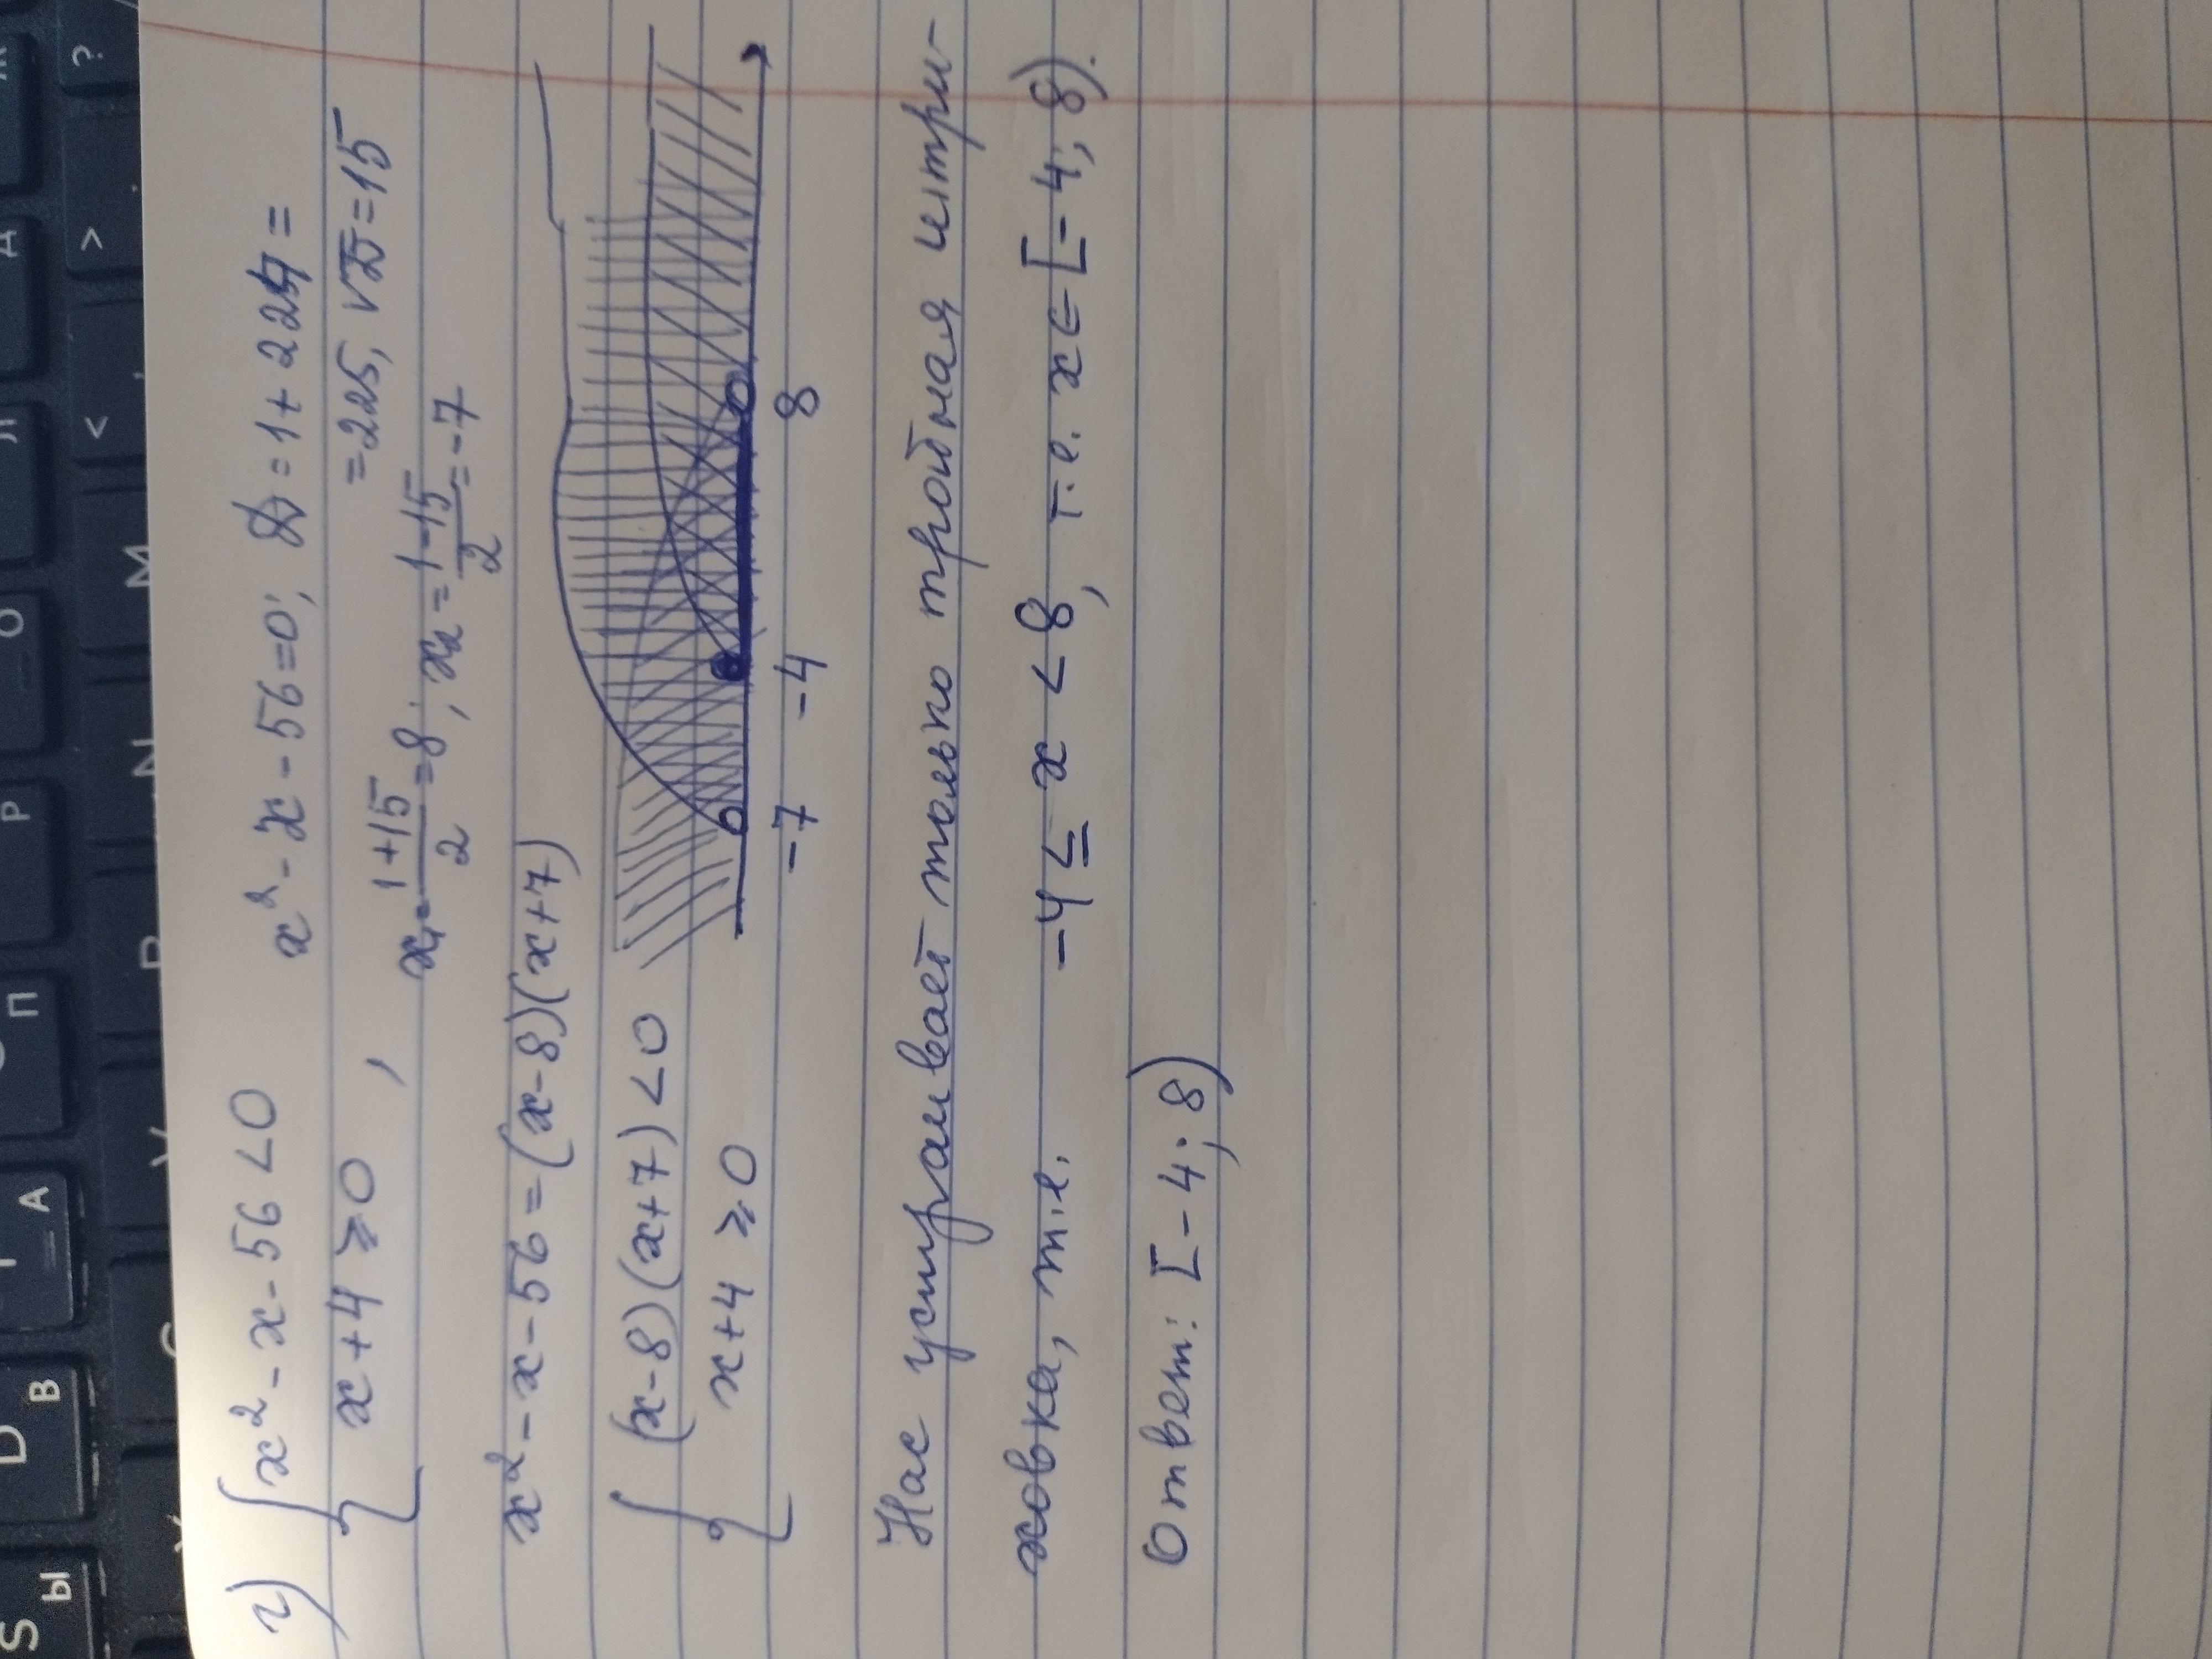 г) { x² - x - 56 < 0    x² - x - 56 = 0; D = 1 + 224 =
x + 4 ≥ 0 ,    = 225, √D = 15
x₁ = (1+15)/2 = 8; x₂ = (1-15)/2 = -7
x² - x - 56 = (x-8)(x+7)
{ (x-8)(x+7) < 0
x + 4 ≥ 0
-7 -4 8
Нас устраивает только тройная штри-
ховка, т.е. -4 ≤ x < 8, т.е. x ∈ [-4; 8).
Ответ: [-4; 8)
S Ы D В А П Р О Л Д Ж
N M < > ?